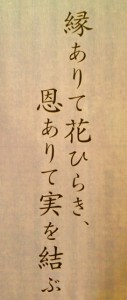 縁ありて花ひらき、
恩ありて実を結ぶ